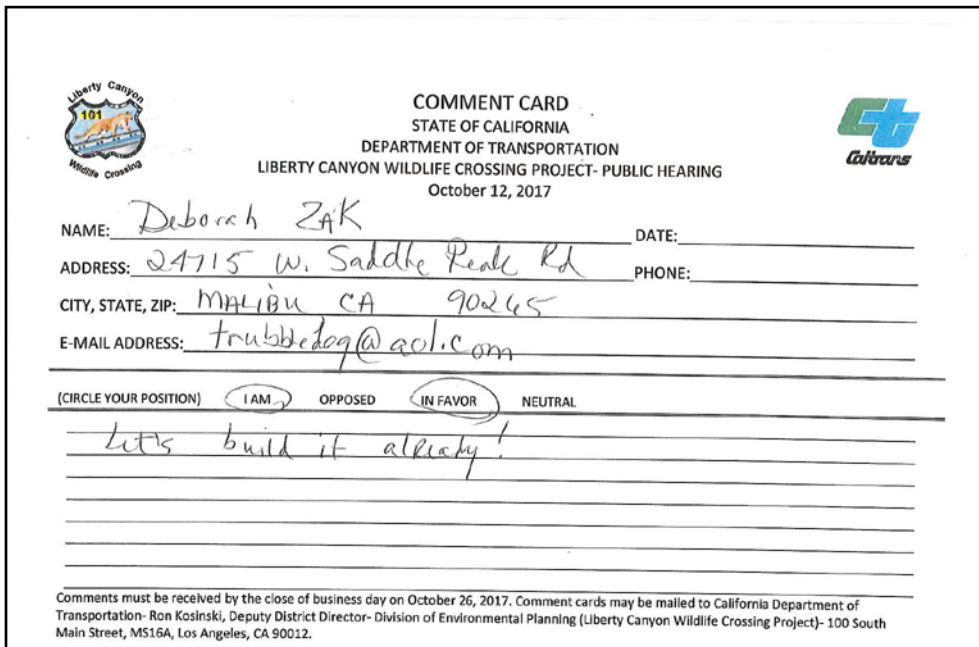 Liberty Canyon
101
Wildlife Crossing
COMMENT CARD
STATE OF CALIFORNIA
DEPARTMENT OF TRANSPORTATION
LIBERTY CANYON WILDLIFE CROSSING PROJECT- PUBLIC HEARING
October 12, 2017
Caltrans
NAME: Deborah ZAK DATE:
ADDRESS: 24715 W. Saddle Peak Rd PHONE:
CITY, STATE, ZIP: MALIBU CA 90265
E-MAIL ADDRESS: trubbledog@aol.com
(CIRCLE YOUR POSITION) I AM OPPOSED IN FAVOR NEUTRAL
Let's build it already!
Comments must be received by the close of business day on October 26, 2017. Comment cards may be mailed to California Department of
Transportation- Ron Kosinski, Deputy District Director- Division of Environmental Planning (Liberty Canyon Wildlife Crossing Project)- 100 South
Main Street, MS16A, Los Angeles, CA 90012.